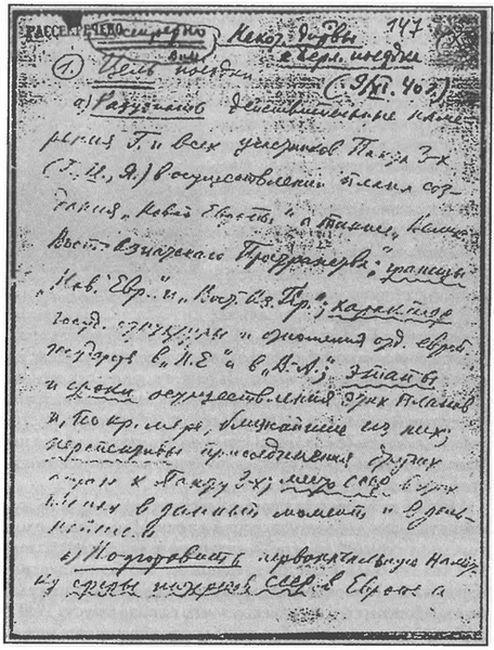 РАССЕКРЕЧЕНО
147
Некот. дирвы
к Берл. поездке
(9/XI. 40 г.)
1. Цель поездки
а) Разузнать действительные наме-
рения Г. и всех участников Пакта 3-х
(Г., И., Я.) в осуществлении плана соз-
дания „Новой Европы", а также „Велик.
Вост.-Азиатского Пространства"; границы
„Нов. Евр." и „Вост. Аз. Пр."; характер
госуд. структуры и отношения отд. европ.
государств в „Н.Е." и в „В.-А."; этапы
и сроки осуществления этих планов
и, по кр. мере, ближайшие из них;
перспективы присоединения других
стран к Пакту 3-х; место СССР в этих
планах в данный момент и в даль-
нейшем.
б) Подготовить первоначальную намет-
ку сферы интересов СССР в Европе, а